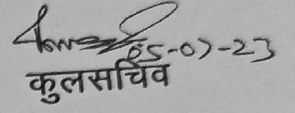 05-07-23
कुलसचिव